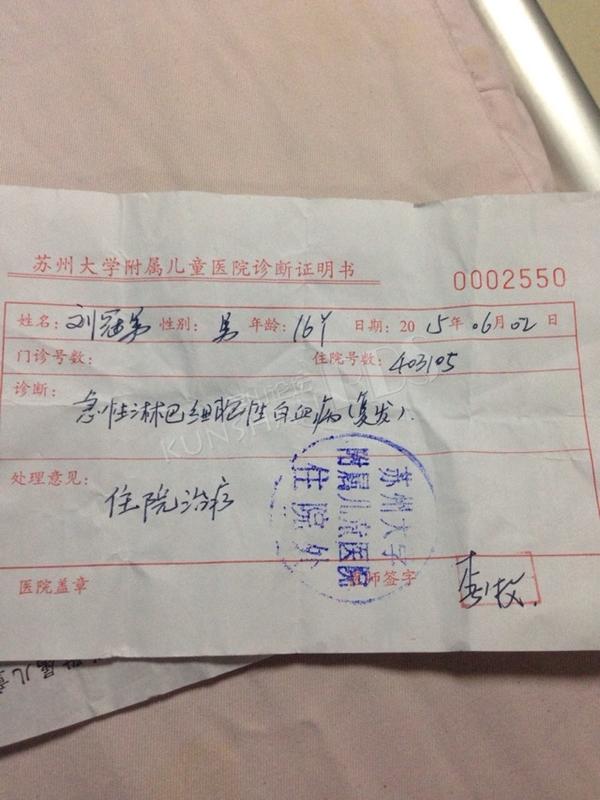 苏州大学附属儿童医院诊断证明书
0002550
姓名: 刘冠男 性别: 男 年龄: 16岁 日期: 2015年06月02日
门诊号数: 住院号数: 403105
诊断:
急性淋巴细胞性白血病(复发).
处理意见:
住院治疗
苏州大学
附属儿童医院
住院处
医院盖章 医师签字
KUNSHAN
BBS